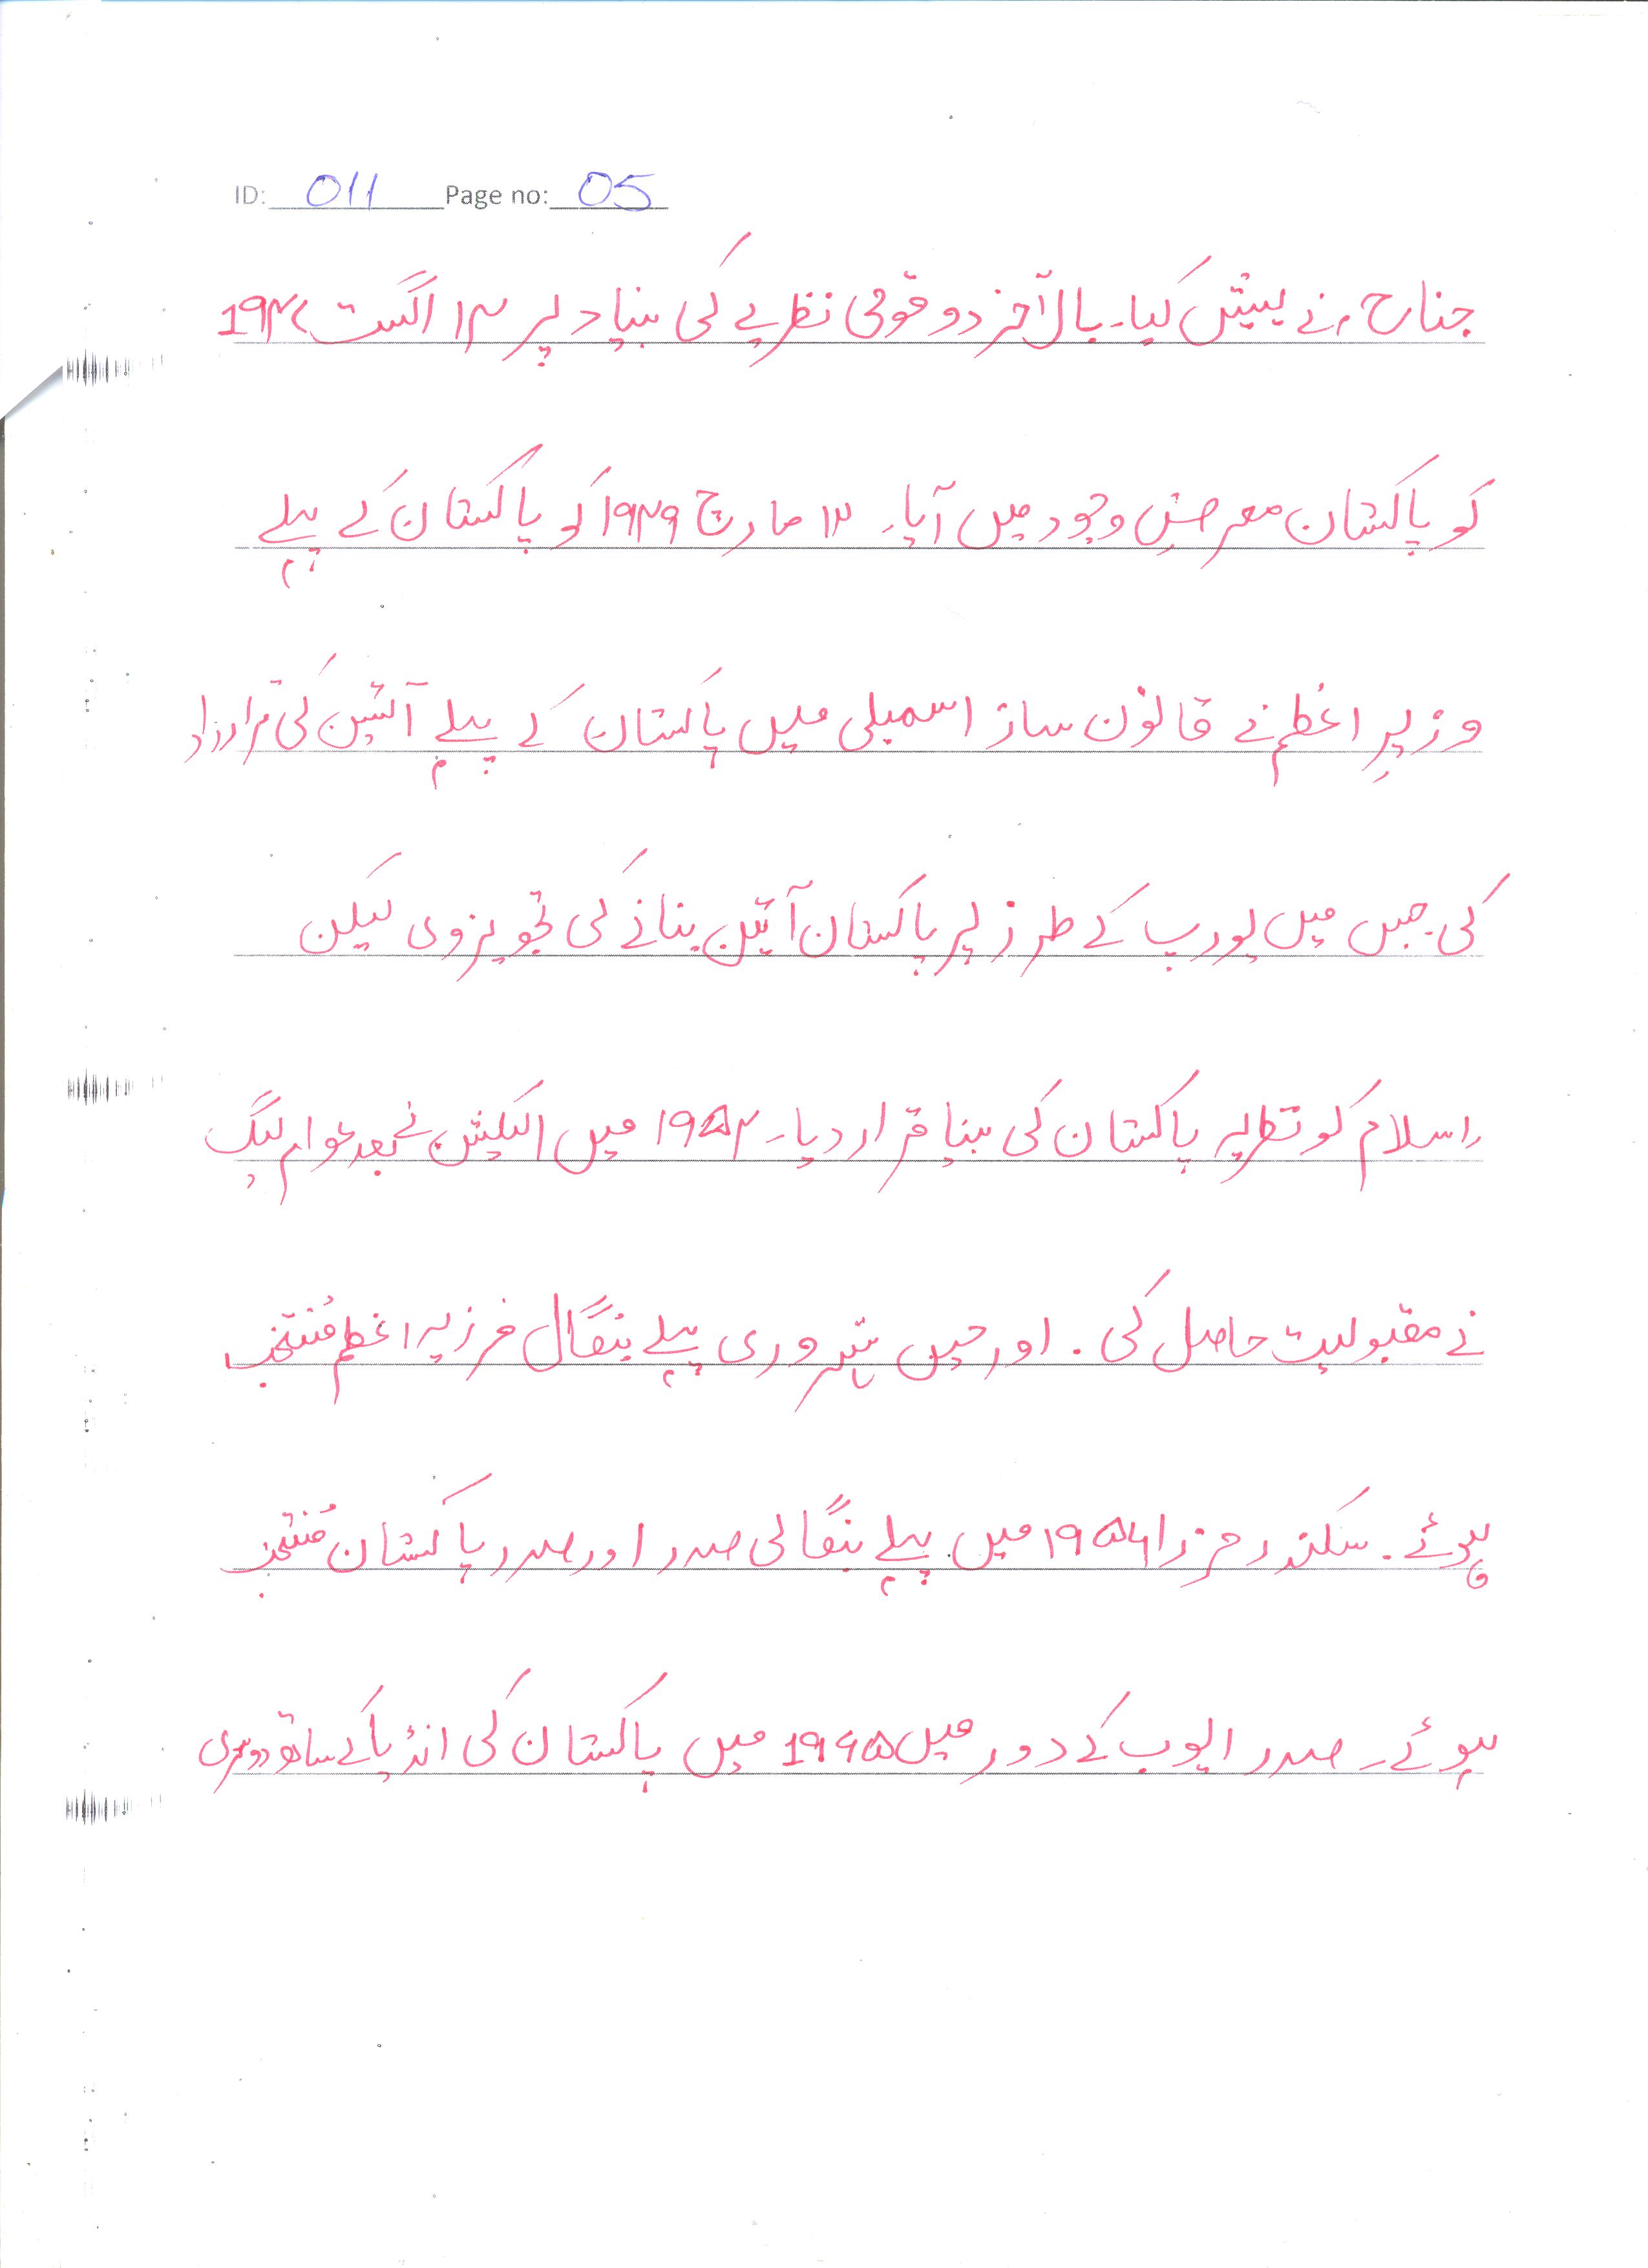 ID: 011 Page no: 05
جناح نے پیش کیا۔ بالآخر دو قومی نظریے کی بنیاد پر ۱۴ اگست ۱۹۴۷
کو پاکستان معرضِ وجود میں آیا۔ ۱۲ مارچ ۱۹۴۹ کو پاکستان کے پہلے
وزیرِ اعظم نے قانون ساز اسمبلی میں پاکستان کے پہلے آئین کی قرارداد
کی جس میں یورپ کے طرز پر پاکستان آئین بنانے کی تجویز دی لیکن
اسلام کو نظریہ پاکستان کی بنیا قرار دیا۔ ۱۹۵۴ میں الیکشن کے بعد عوام لیگ
نے مقبولیت حاصل کی۔ اور حسین سہروردی پہلے بنگال وزیر اعظم مُنتخب
ہوئے۔ سکندر مرزا ۱۹۵۶ میں پہلے بنگالی صدر اور صدر پاکستان مُنتخب
ہوئے۔ صدر ایوب کے دور میں ۱۹۶۵ میں پاکستان کی انڈیا کے ساتھ دوسری